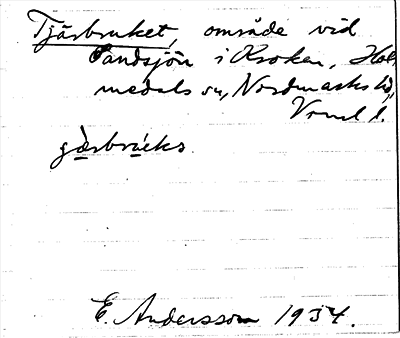 Tjärbruket, område vid
Sandsjön i Kroken, Hol-
medals sn, Nordmarks hd,
Vrml l.
gärbruicks
E. Andersson 1934.